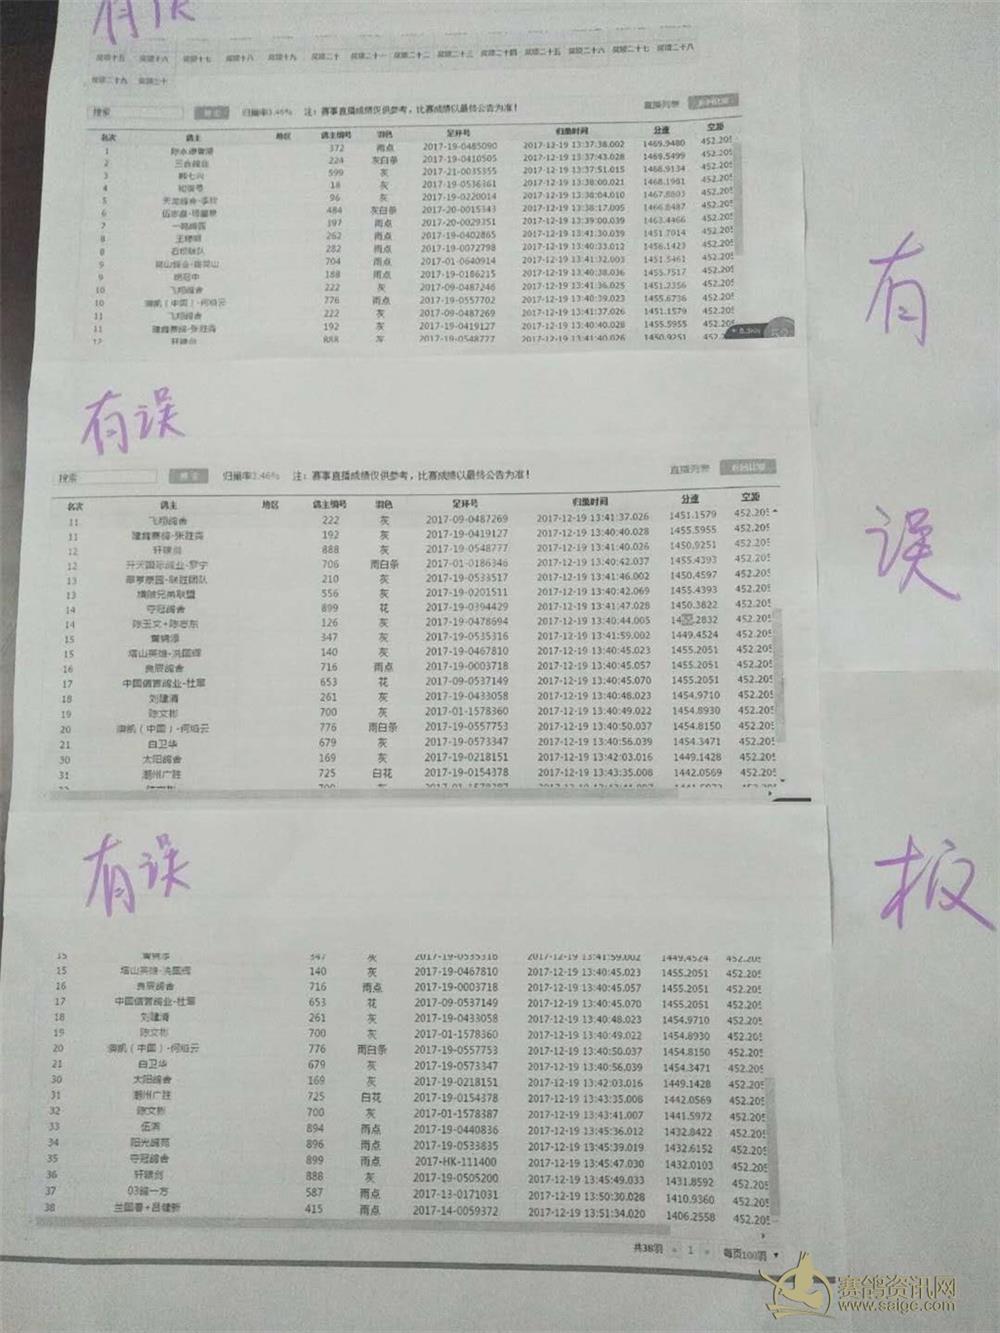 有误
翼棚十五 翼棚十六 翼棚十七 翼棚十八 翼棚十九 翼棚二十 翼棚二十一 翼棚二十二 翼棚二十三 翼棚二十四 翼棚二十五 翼棚二十六 翼棚二十七 翼棚二十八
搜索 归巢率3.46% 注：赛事直播成绩仅供参考，比赛成绩以最终公告为准！ 直播列表
名次 鸽主 地区 鸽主编号 羽色 足环号 归巢时间 分速 空距
1 372 雨点 2017-19-0485090 2017-12-19 13:37:38.002 1469.9480 452.205
2 三合鸽业 224 灰白条 2017-19-0410505 2017-12-19 13:37:43.028 1469.5499 452.205
3 599 灰 2017-21-0035355 2017-12-19 13:37:51.015 1468.9134 452.205
4 18 灰 2017-19-0536361 2017-12-19 13:38:00.021 1468.1981 452.205
5 96 灰 2017-19-0220014 2017-12-19 13:38:04.010 1467.8803 452.205
6 484 灰白条 2017-20-0015343 2017-12-19 13:38:17.005 1466.8487 452.205
7 197 雨点 2017-20-0029351 2017-12-19 13:39:00.039 1463.4466 452.205
8 262 雨点 2017-19-0402865 2017-12-19 13:41:30.039 1451.7014 452.205
8 282 雨点 2017-19-0072798 2017-12-19 13:40:33.012 1456.1423 452.205
9 704 雨点 2017-01-0640914 2017-12-19 13:41:32.003 1451.5461 452.205
9 188 雨点 2017-19-0186215 2017-12-19 13:40:38.036 1455.7517 452.205
10 飞翔鸽舍 222 灰 2017-09-0487246 2017-12-19 13:41:36.025 1451.2356 452.205
10 澳凯（中国）-何焰云 776 雨点 2017-19-0557702 2017-12-19 13:40:39.023 1455.6736 452.205
11 飞翔鸽舍 222 灰 2017-09-0487269 2017-12-19 13:41:37.026 1451.1579 452.205
11 建辉赛鸽-张胜尧 192 灰 2017-19-0419127 2017-12-19 13:40:40.028 1455.5955 452.205
12 轩辕剑 888 灰 2017-19-0548777 2017-12-19 13:41:40.026 1450.9251 452
有误
搜索 归巢率3.46% 注：赛事直播成绩仅供参考，比赛成绩以最终公告为准！ 直播列表
名次 鸽主 地区 鸽主编号 羽色 足环号 归巢时间 分速 空距
11 飞翔鸽舍 222 灰 2017-09-0487269 2017-12-19 13:41:37.026 1451.1579 452.205
11 建辉赛鸽-张胜尧 192 灰 2017-19-0419127 2017-12-19 13:40:40.028 1455.5955 452.205
12 轩辕剑 888 灰 2017-19-0548777 2017-12-19 13:41:40.026 1450.9251 452.205
12 开天国际鸽业-罗宁 706 雨白条 2017-01-0186346 2017-12-19 13:40:42.037 1455.4393 452.205
13 翠亨泰园-联胜团队 210 灰 2017-19-0533517 2017-12-19 13:41:46.002 1450.4597 452.205
13 横陂兄弟联盟 556 灰 2017-19-0201511 2017-12-19 13:40:42.069 1455.4393 452.205
14 夺冠鸽舍 899 花 2017-19-0394429 2017-12-19 13:41:47.028 1450.3822 452.205
14 陈玉文+陈志东 126 灰 2017-19-0478694 2017-12-19 13:40:44.005 1455.2832 452.205
15 黄锦添 347 灰 2017-19-0535316 2017-12-19 13:41:59.002 1449.4524 452.205
15 塔山英雄-冼国辉 140 灰 2017-19-0467810 2017-12-19 13:40:45.023 1455.2051 452.205
16 良辰鸽舍 716 雨点 2017-19-0003718 2017-12-19 13:40:45.057 1455.2051 452.205
17 中国信宫鸽业-杜军 653 花 2017-09-0537149 2017-12-19 13:40:45.070 1455.2051 452.205
18 刘建清 261 灰 2017-19-0433058 2017-12-19 13:40:48.023 1454.9710 452.205
19 陈文彬 700 灰 2017-01-1578360 2017-12-19 13:40:49.022 1454.8930 452.205
20 澳凯（中国）-何焰云 776 雨白条 2017-19-0557753 2017-12-19 13:40:50.037 1454.8150 452.205
21 白卫华 679 灰 2017-19-0573347 2017-12-19 13:40:56.039 1454.3471 452.205
30 太阳鸽舍 169 灰 2017-19-0218151 2017-12-19 13:42:03.016 1449.1428 452.205
31 潮州广胜 725 白花 2017-19-0154378 2017-12-19 13:43:35.008 1442.0569 452.205
有误
15 黄锦添 347 灰 2017-19-0535316 2017-12-19 13:41:59.002 1449.4524 452.205
15 塔山英雄-冼国辉 140 灰 2017-19-0467810 2017-12-19 13:40:45.023 1455.2051 452.205
16 良辰鸽舍 716 雨点 2017-19-0003718 2017-12-19 13:40:45.057 1455.2051 452.205
17 中国信宫鸽业-杜军 653 花 2017-09-0537149 2017-12-19 13:40:45.070 1455.2051 452.205
18 刘建清 261 灰 2017-19-0433058 2017-12-19 13:40:48.023 1454.9710 452.205
19 陈文彬 700 灰 2017-01-1578360 2017-12-19 13:40:49.022 1454.8930 452.205
20 澳凯（中国）-何焰云 776 雨白条 2017-19-0557753 2017-12-19 13:40:50.037 1454.8150 452.205
21 白卫华 679 灰 2017-19-0573347 2017-12-19 13:40:56.039 1454.3471 452.205
30 太阳鸽舍 169 灰 2017-19-0218151 2017-12-19 13:42:03.016 1449.1428 452.205
31 潮州广胜 725 白花 2017-19-0154378 2017-12-19 13:43:35.008 1442.0569 452.205
32 陈文彬 700 灰 2017-01-1578387 2017-12-19 13:43:41.007 1441.5972 452.205
33 伍滨 894 雨点 2017-19-0440836 2017-12-19 13:45:36.012 1432.8422 452.205
34 阳光鸽苑 896 雨点 2017-19-0533835 2017-12-19 13:45:39.019 1432.6152 452.205
35 夺冠鸽舍 899 雨点 2017-HK-111400 2017-12-19 13:45:47.030 1432.0103 452.205
36 轩辕剑 888 灰 2017-19-0505200 2017-12-19 13:45:49.033 1431.8592 452.205
37 03鸽一方 587 雨点 2017-13-0171031 2017-12-19 13:50:30.028 1410.9360 452.205
38 兰国春+吕健新 415 雨点 2017-14-0059372 2017-12-19 13:51:34.020 1406.2558 452.205
共38羽 « 1 » 每页100羽
有
误
板
赛鸽资讯网
www.saigc.com